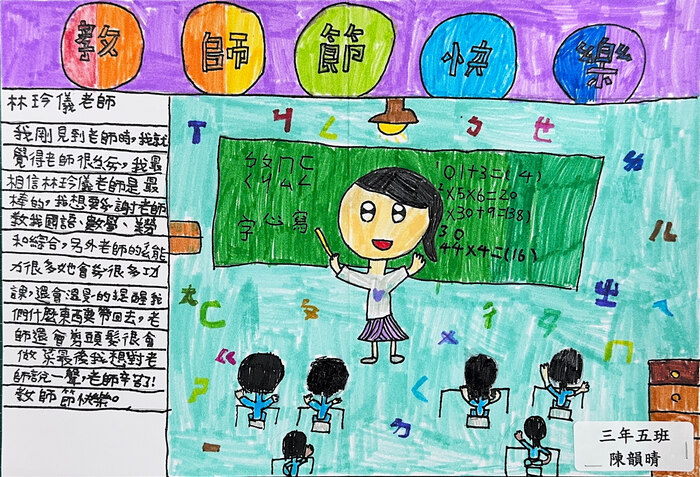 教師節快樂
林玲儀老師
我剛見到老師時,我就
覺得老師很ㄘ,我最
相信林玲儀老師是最
棒的,我想要謝老師
教我國語、數學、美勞
和綜合,另外老師的能
力很多她會教很多功
課,還會溫ㄒ的提醒我
們什麼東西要帶回去,老
師還會剪頭髮很會
做菜最後我想對老
師說一聲,老師辛苦了!
教師節快樂。
01+3=(4)
2×5×6=20
×30+9=(38)
30
44×4=(16)
字 心 寫
ㄅ
ㄣ
ㄥ
ㄘ
ㄜ
ㄓ
ㄈ
ㄦ
ㄔ
ㄇ
ㄑ
ㄌ
三年五班
陳韻晴